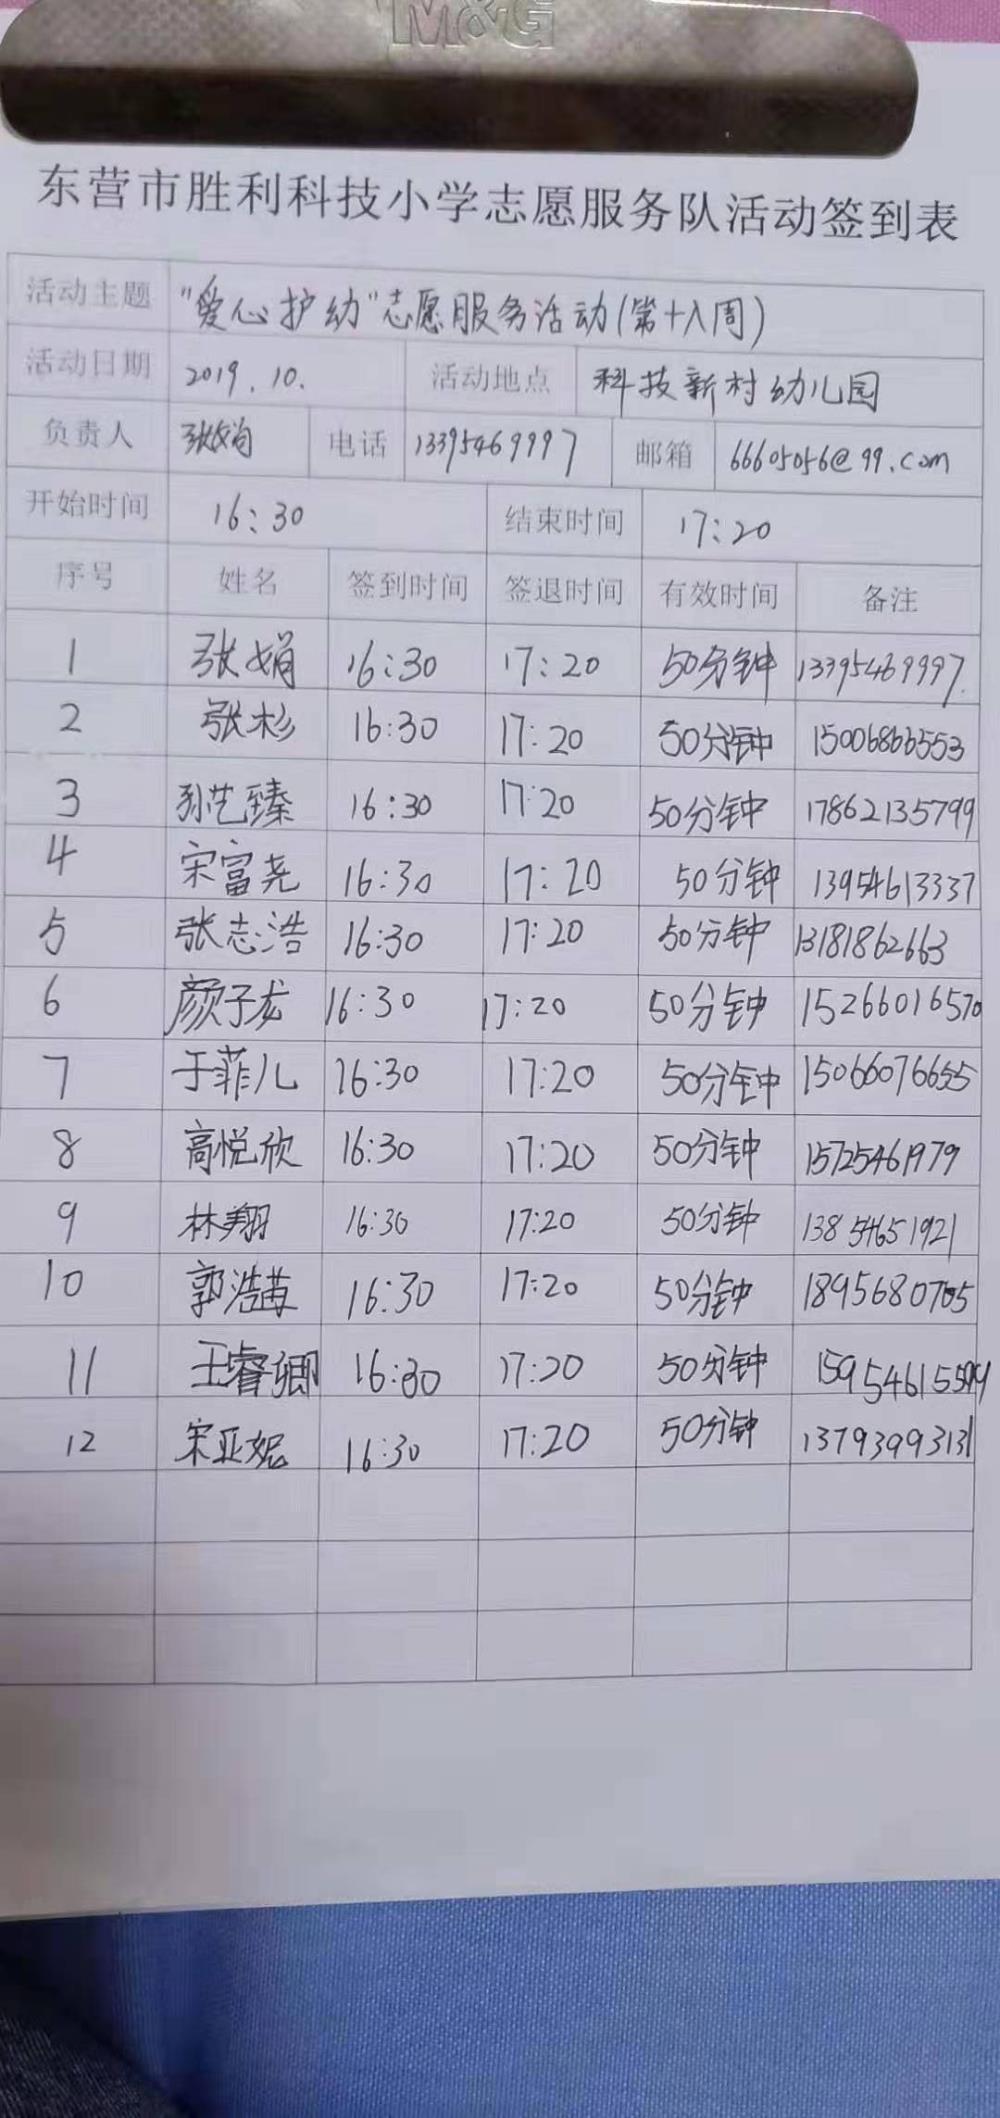 M&G
东营市胜利科技小学志愿服务队活动签到表
活动主题 "爱心护幼"志愿服务活动(第十八周)
活动日期 2019.10. 活动地点 科技新村幼儿园
负责人 张娟 电话 13395469997 邮箱 66605056@99.com
开始时间 16:30 结束时间 17:20
序号 姓名 签到时间 签退时间 有效时间 备注
1 张娟 16:30 17:20 50分钟 13395469997
2 张杉 16:30 17:20 50分钟 15006866553
3 孙艺臻 16:30 17:20 50分钟 17862135799
4 宋富尧 16:30 17:20 50分钟 13954613337
5 张志浩 16:30 17:20 50分钟 13181862663
6 颜子龙 16:30 17:20 50分钟 15266016570
7 于菲儿 16:30 17:20 50分钟 15066076655
8 高悦欣 16:30 17:20 50分钟 15725461979
9 林翔 16:30 17:20 50分钟 13854651921
10 16:30 17:20 50分钟
11 王睿卿 16:30 17:20 50分钟
12 宋亚妮 16:30 17:20 50分钟 13793993131